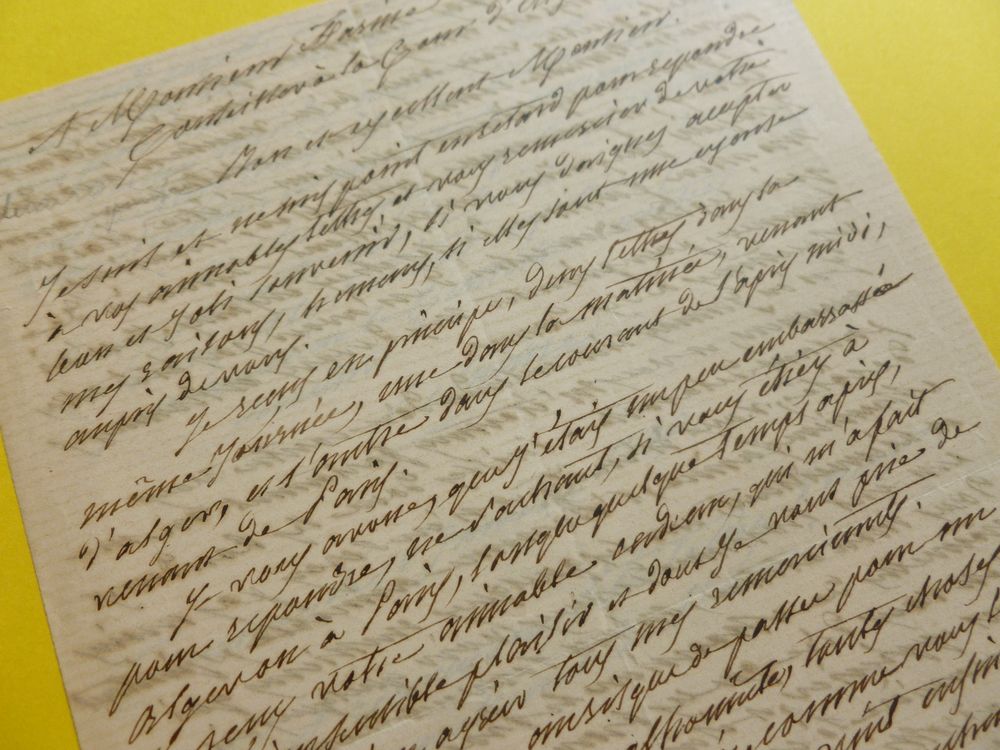 A Monsieur Farine
Conseiller à la Cour d'
Bon et excellent Monsieur.
Je suis et ne suis point en retard pour repondre
à vos aimables lettres et vous remercier de votre
beau et joli souvenir, si vous daignez accepter
mes raisons, si elles sont une excuse
aupris de vous.
Je reçus en principe, deux lettres dans la
même Journée, une dans la matinée, venant
d'alger, et l'autre dans le courant de l'apris midi,
venant de Paris
Je vous avoue, que j'étais un peu embarrassé
pour repondre, ne sachant, si vous étiez à
alger ou à Paris, lorsque quelque temps apris,
votre aimable qui m'a fait
plaisir et dont Je vous prie de
tous mes remerciments.
ainsi que de passer pour un
malhonnête, toutes choses
comme vous